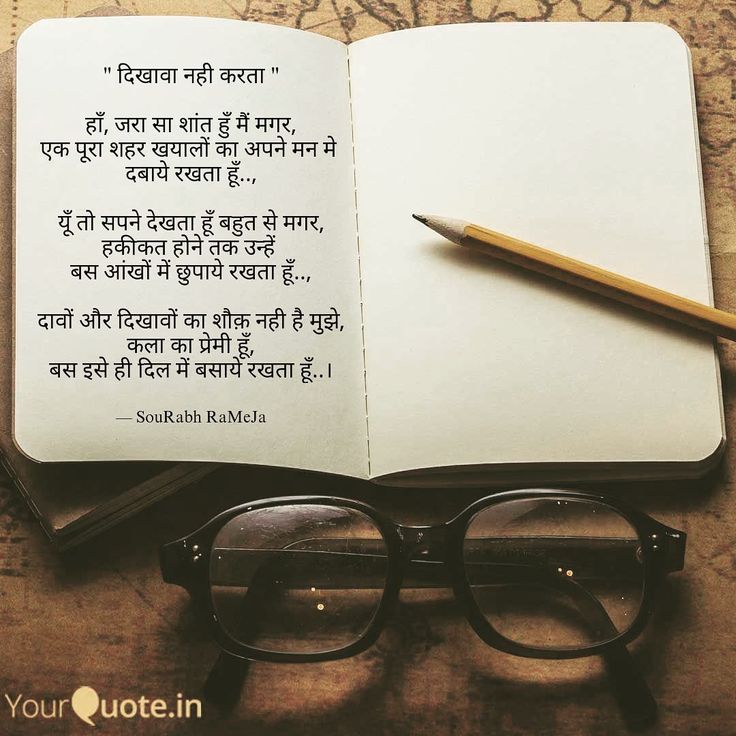 " दिखावा नही करता "
हाँ, जरा सा शांत हुँ मैं मगर,
एक पूरा शहर खयालों का अपने मन मे
दबाये रखता हूँ..,
यूँ तो सपने देखता हूँ बहुत से मगर,
हकीकत होने तक उन्हें
बस आंखों में छुपाये रखता हूँ..,
दावों और दिखावों का शौक़ नही है मुझे,
कला का प्रेमी हूँ,
बस इसे ही दिल में बसाये रखता हूँ..।
— SouRabh RaMeJa
YourQuote.in